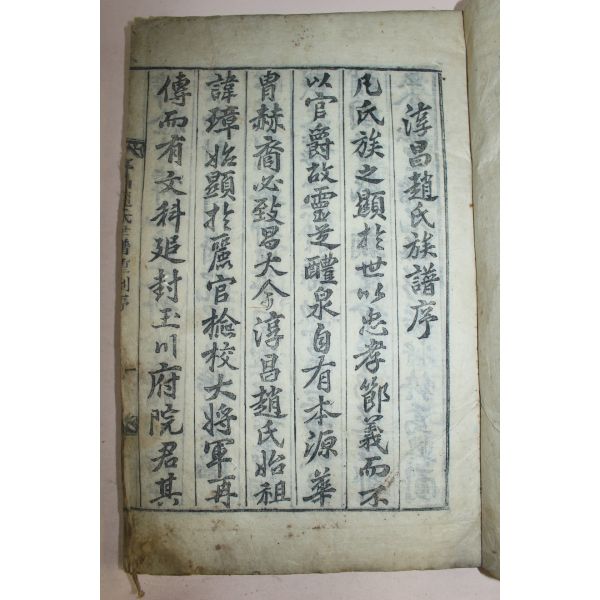 淳昌趙氏族譜序
凡氏族之顯於世以忠孝節義而不
以官爵故靈芝醴泉自有本源華
胄赫裔必致昌大今淳昌趙氏始祖
諱璋始顯於麗官檢校大將軍再
傳而有文科追封玉川府院君其
趙氏世譜